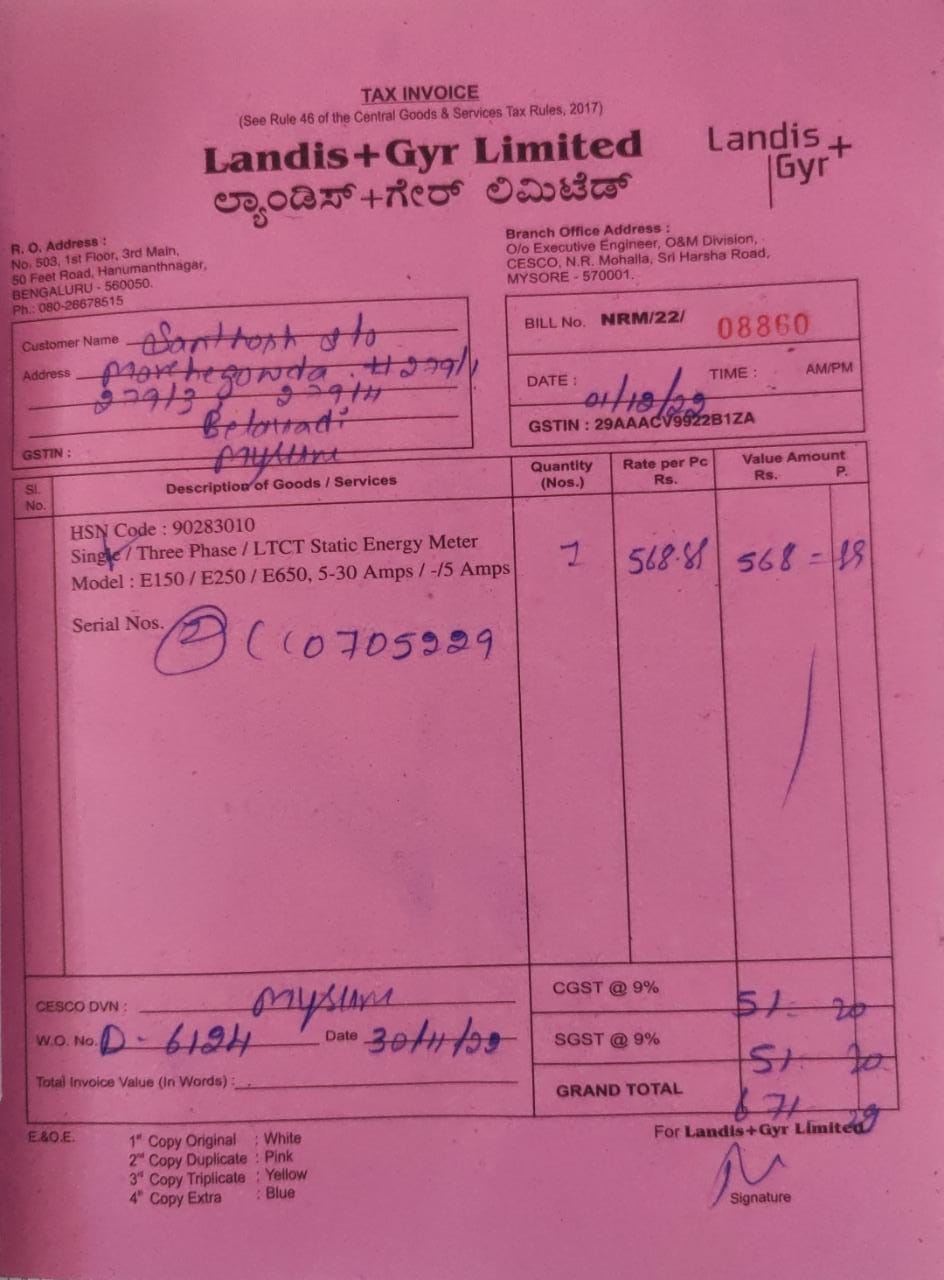 TAX INVOICE
(See Rule 46 of the Central Goods & Services Tax Rules, 2017)
Landis+Gyr Limited
ಲ್ಯಾಂಡಿಸ್+ಗೇರ್ ಲಿಮಿಟೆಡ್
Landis
Gyr+
R. O. Address :
No. 503, 1st Floor, 3rd Main,
50 Feet Road, Hanumanthnagar,
BENGALURU - 560050.
Ph.: 080-26678515
Branch Office Address :
O/o Executive Engineer, O&M Division,
CESCO, N.R. Mohalla, Sri Harsha Road,
MYSORE - 570001.
Customer Name Santhosh s/o
Address # 279/1
279/3 279/4
GSTIN :
BILL No. NRM/22/ 08860
DATE : 01/12/22 TIME : AM/PM
GSTIN : 29AAACV9922B1ZA
Sl. No. Description of Goods / Services Quantity (Nos.) Rate per Pc Rs. Value Amount Rs. P.
HSN Code : 90283010
Single / Three Phase / LTCT Static Energy Meter 1 568.81 568 =
Model : E150 / E250 / E650, 5-30 Amps / -/5 Amps
Serial Nos. 0705229
CESCO DVN :
W.O. No. D - 6124 Date 30/11/22
Total Invoice Value (In Words) :
CGST @ 9% 51 - 20
SGST @ 9% 51 - 20
GRAND TOTAL 671
E.&O.E.
1st Copy Original : White
2nd Copy Duplicate : Pink
3rd Copy Triplicate : Yellow
4th Copy Extra : Blue
For Landis+Gyr Limited
Signature